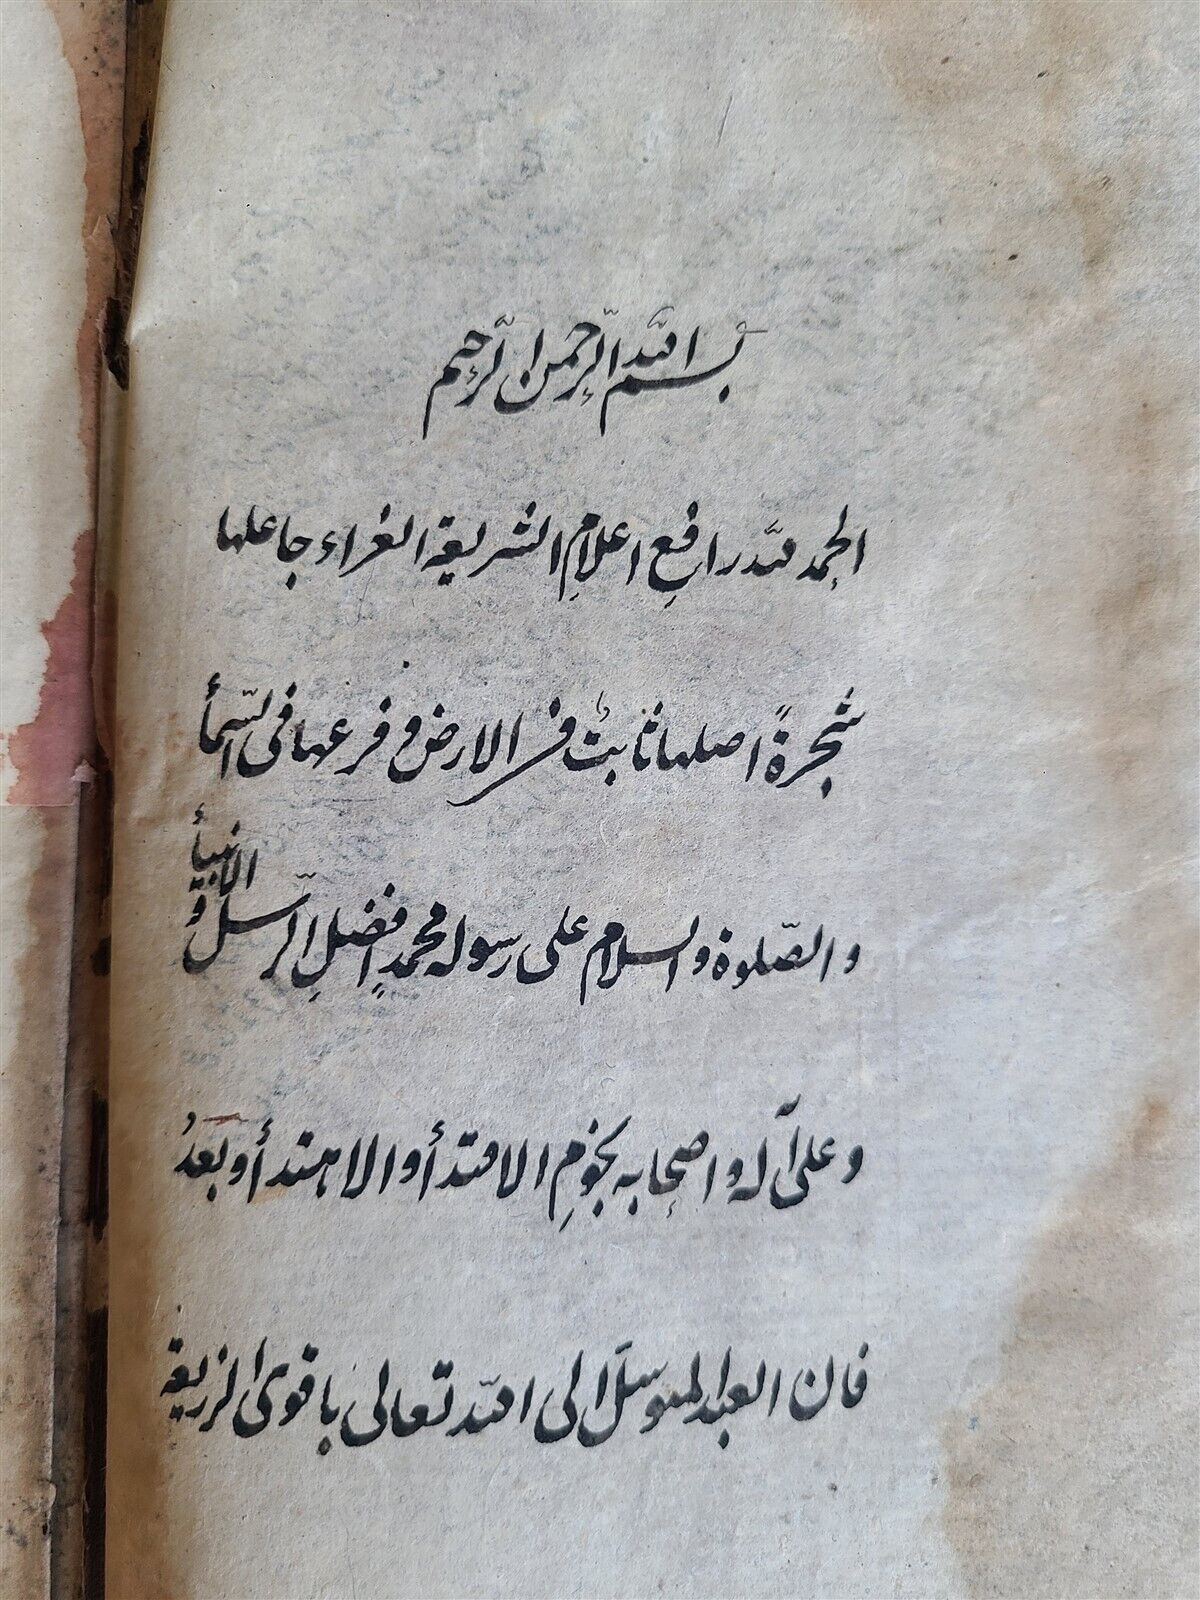 بسم الله الرحمن الرحيم
الحمد لله رافعِ اعلامِ الشريعة الغراء جاعلها
شجرةً اصلها ثابت فى الارض و فرعها فى السّمأ
والصّلوة والسلام على رسوله محمدٍ افضلِ الرّسل و الانبيأ
وعلى آله واصحابه نجومِ الاقتدأ والاهتدأ وبعدُ
فان العبد المتوسل الى الله تعالى باقوى الزريعة